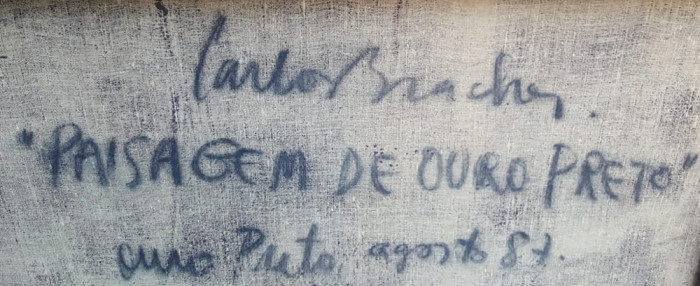 Carlos Bracher.
"PAISAGEM DE OURO PRETO"
Ouro Preto, agosto 87.